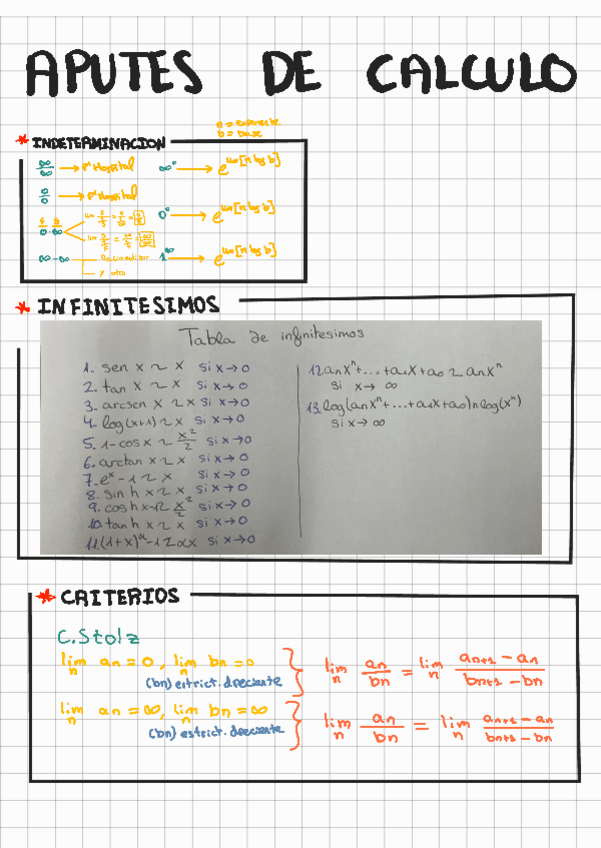 APUTES DE CALCULO
n = exponente
b = base
* INDETERMINACION
∞/∞ → l'Hospital
0/0 → l'Hospital
0·∞
∞-∞
y otro
∞⁰ → e^lim[n log b]
0⁰ → e^lim[n log b]
1^∞ → e^lim[n log b]
* INFINITESIMOS
Tabla de infinitesimos
1. sen x ~ x si x→0
2. tan x ~ x si x→0
3. arcsen x ~ x si x→0
4. log(x+1) ~ x si x→0
5. 1-cos x ~ x²/2 si x→0
6. arctan x ~ x si x→0
7. eˣ-1 ~ x si x→0
8. sin h x ~ x si x→0
9. cosh x-1 ~ x²/2 si x→0
10. tan h x ~ x si x→0
11. (1+x)^α-1 ~ αx si x→0
12. anxⁿ+...+a1x+a0 ~ anxⁿ
si x→ ∞
13. log(anxⁿ+...+a1x+a0) ~ log(xⁿ)
si x→ ∞
* CRITERIOS
C. Stolz
lim n an = 0, lim n bn = 0
(bn) estrict. decreciente
lim n an/bn = lim n (an+1 - an)/(bn+1 - bn)
lim n an = ∞, lim n bn = ∞
lim n an/bn = lim n (an+1 - an)/(bn+1 - bn)